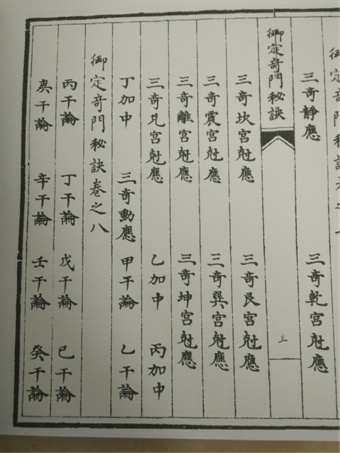 三奇靜應 三奇乾宮尅應
御定奇門秘訣 三
三奇坎宮尅應 三奇艮宮尅應
三奇震宮尅應 三奇巽宮尅應
三奇離宮尅應 三奇坤宮尅應
三奇兑宮尅應 乙加中 丙加中
丁加中 三奇動應 甲干論 乙干論
御定奇門秘訣卷之八
丙干論 丁干論 戊干論 己干論
庚干論 辛干論 壬干論 癸干論